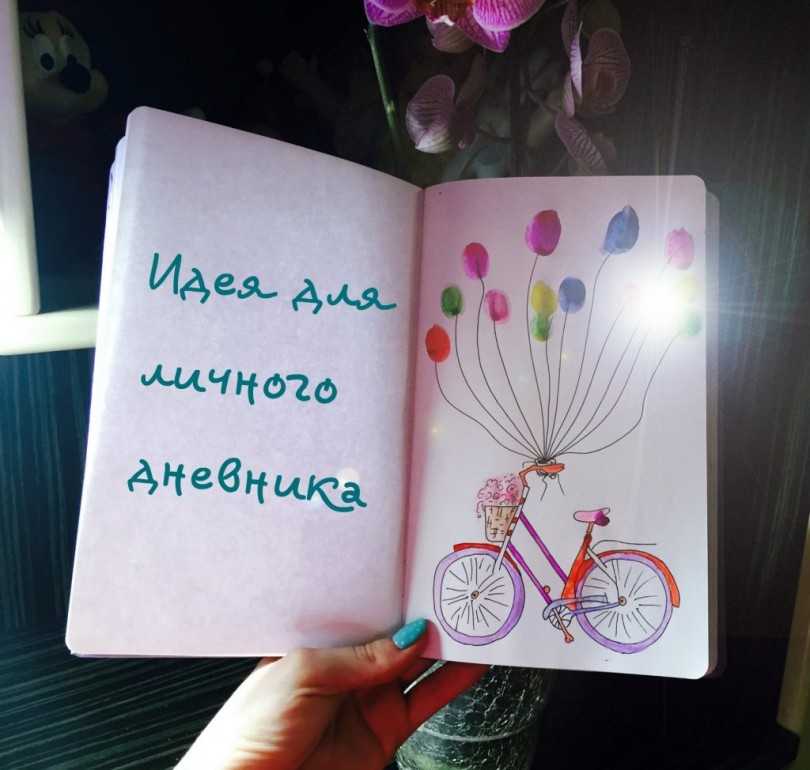 Идея для
личного
дневника